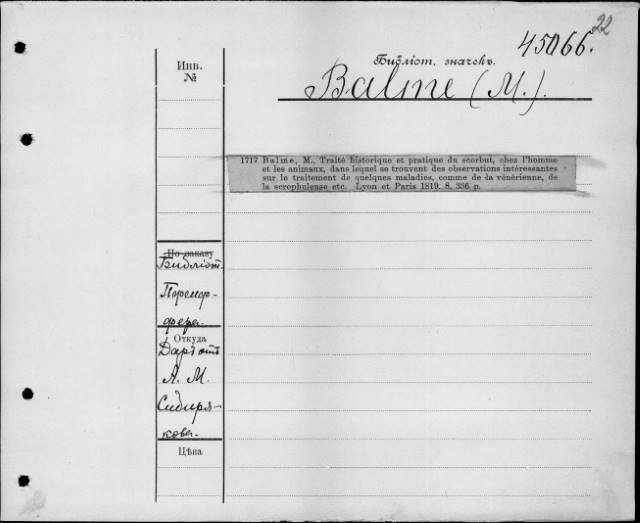 22
45066.
Инв.
№
Библіот. значекъ.
Balme (M.).
1717 Balme, M., Traité historique et pratique du scorbut, chez l'homme
et les animaux, dans lequel se trouvent des observations intéressantes
sur le traitement de quelques maladies, comme de la vénérienne, de
la scrophuleuse etc. Lyon et Paris 1819. 8. 336 p.
По заказу
Библіот.
Откуда
Даръ отъ
А. М.
Сибиря-
кова.
Цѣна